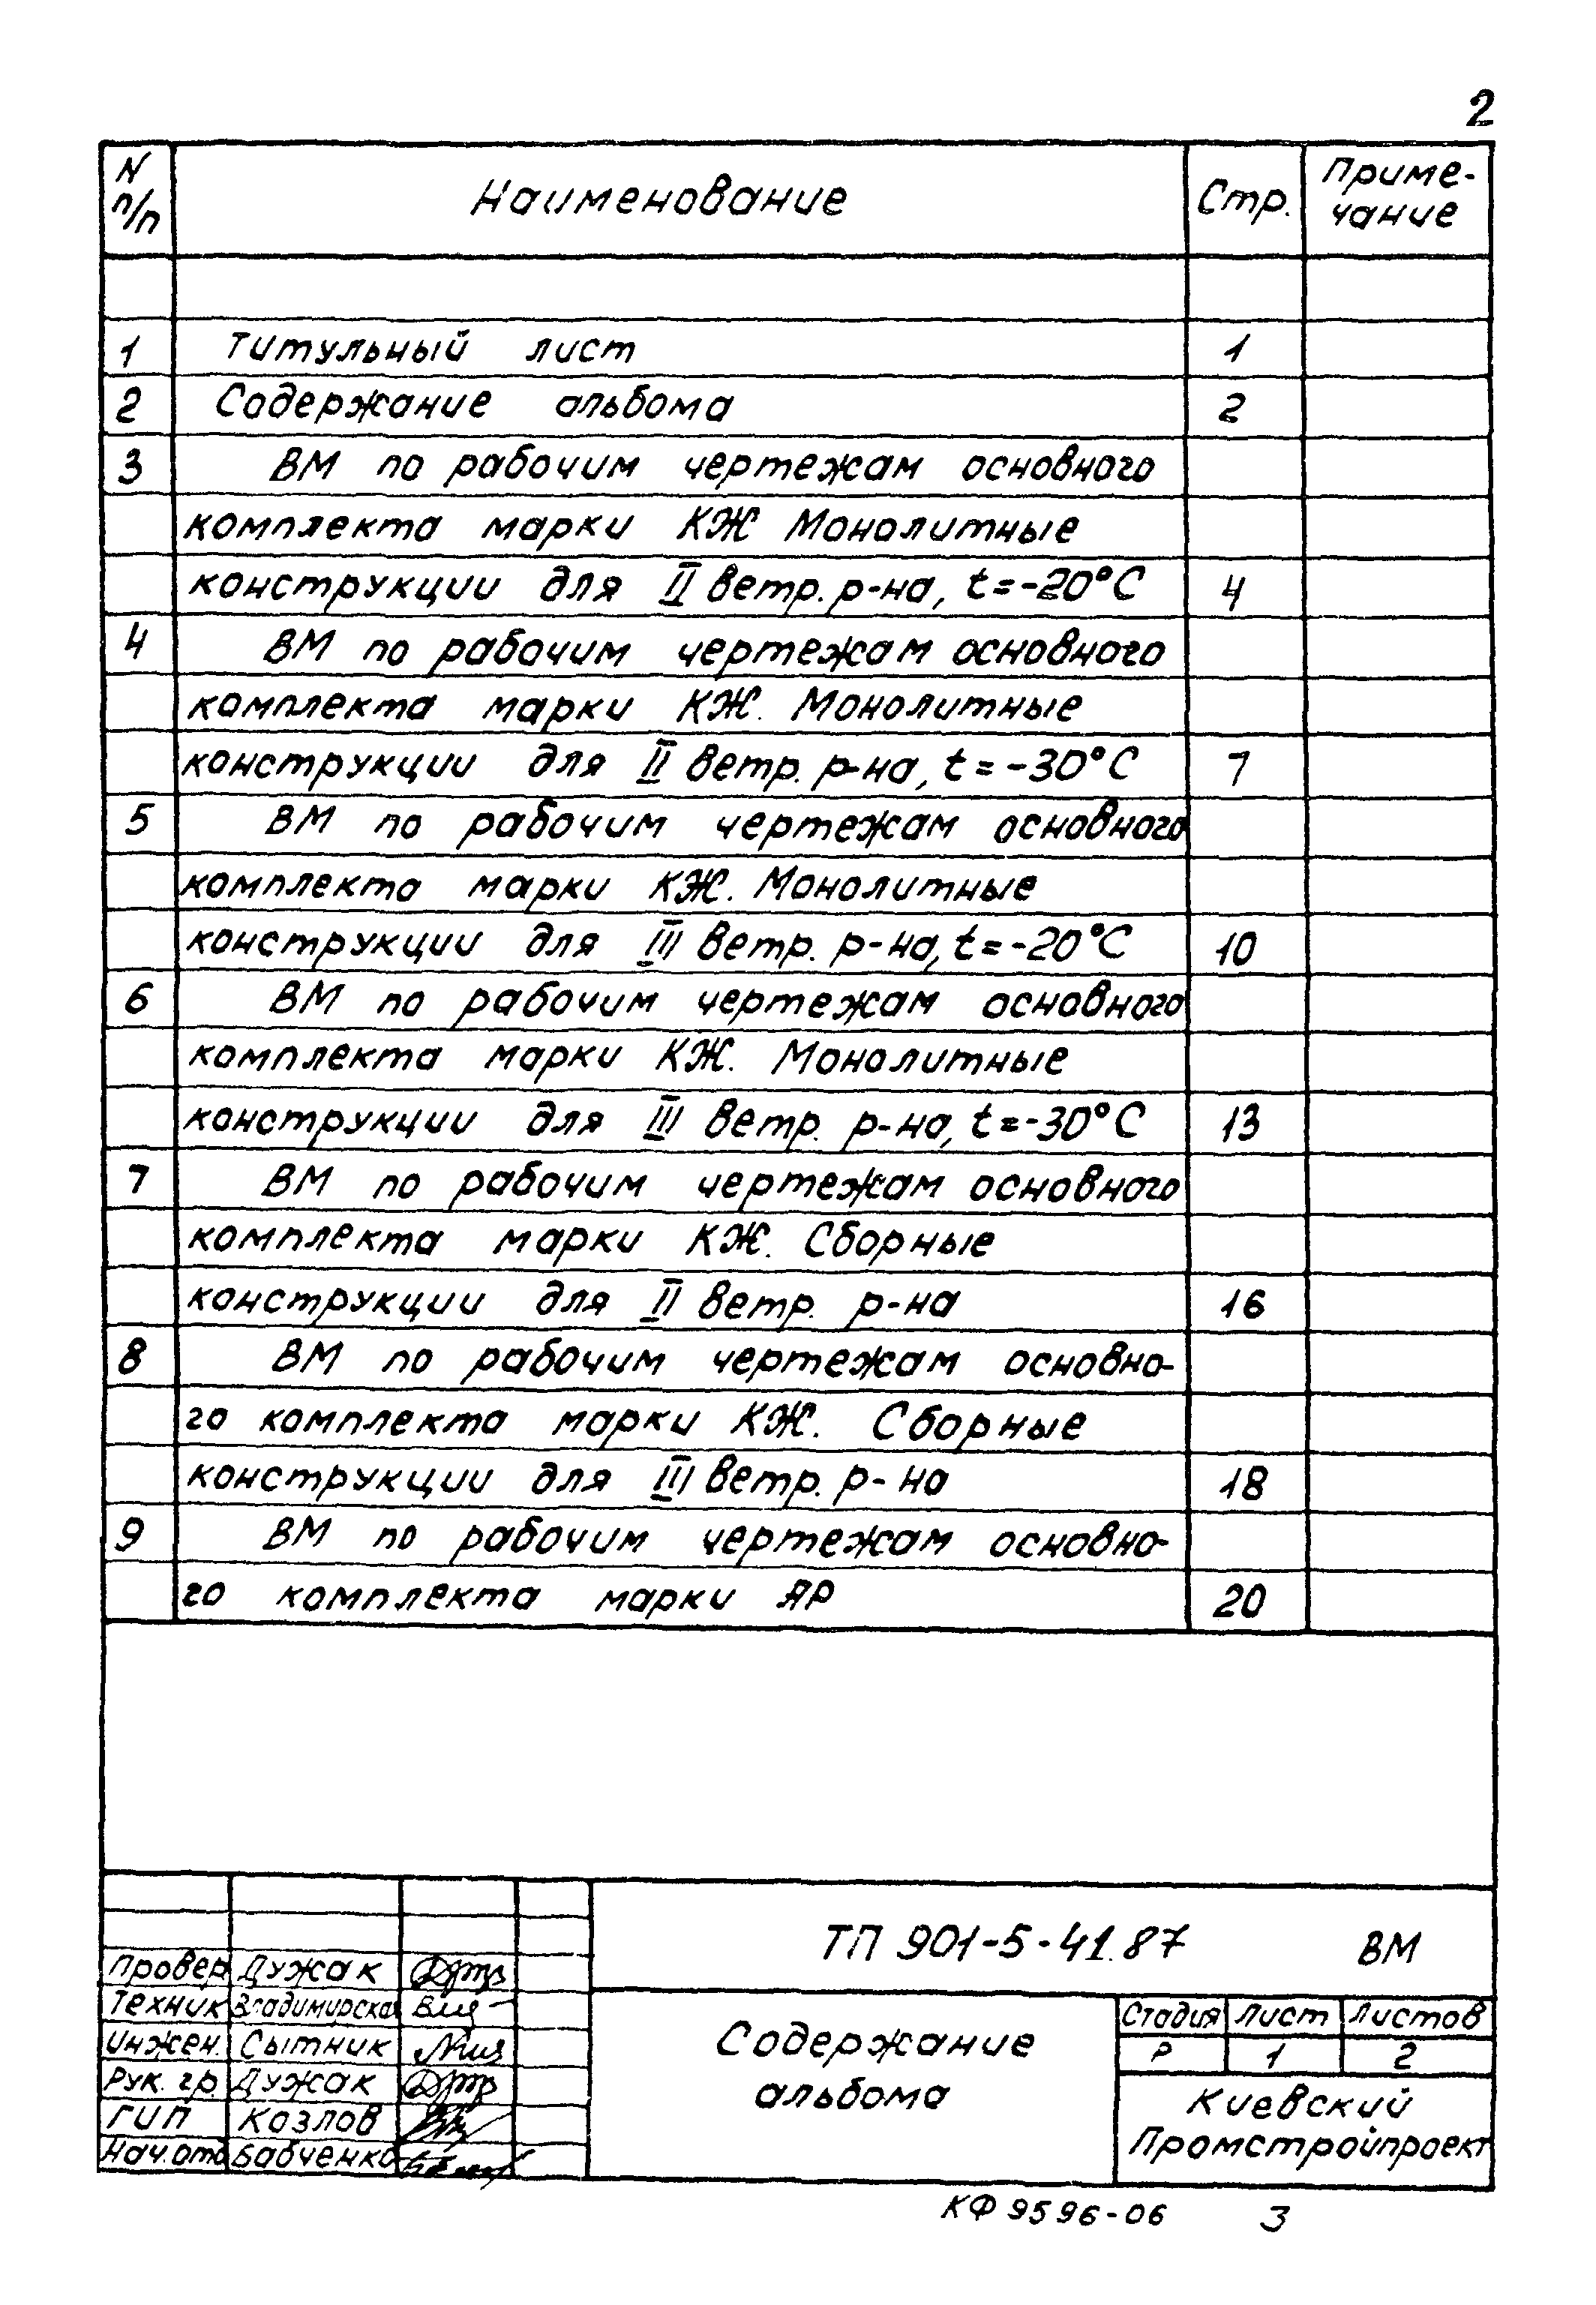 2
N п/п Наименование Стр. Приме-
чание
1 Титульный лист 1
2 Содержание альбома 2
3 ВМ по рабочим чертежам основного
комплекта марки КЖ Монолитные
конструкции для II ветр. р-на, t=-20°С 4
4 ВМ по рабочим чертежам основного
комплекта марки КЖ. Монолитные
конструкции для II ветр. р-на, t=-30°С 7
5 ВМ по рабочим чертежам основного
комплекта марки КЖ. Монолитные
конструкции для III ветр. р-на, t=-20°С 10
6 ВМ по рабочим чертежам основного
комплекта марки КЖ. Монолитные
конструкции для III ветр. р-на, t=-30°С 13
7 ВМ по рабочим чертежам основного
комплекта марки КЖ. Сборные
конструкции для II ветр. р-на 16
8 ВМ по рабочим чертежам основно-
го комплекта марки КЖ. Сборные
конструкции для III ветр. р-на 18
9 ВМ по рабочим чертежам основно-
го комплекта марки АР 20
ТП 901-5-41.87 ВМ
Провер Дужак
Техник Владимирская
Инжен. Сытник
Рук. гр. Дужак
ГИП Козлов
Нач.отд Бабченко
Содержание
альбома
Стадия Лист Листов
Р 1 2
Киевский
Промстройпроект
КФ 9596-06 3